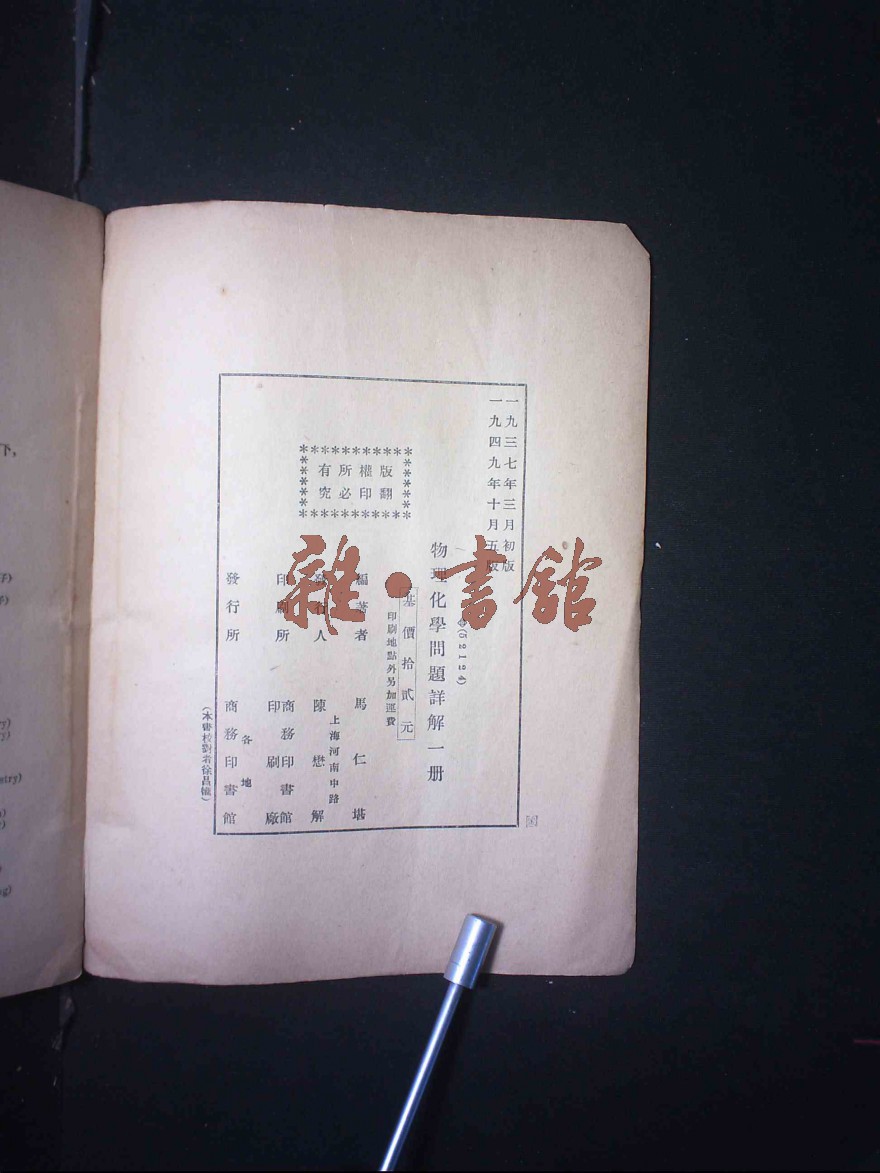 一九三七年三月初版
一九四九年十月五版
(52124)
物理化學問題詳解一册
基價拾貳元
印刷地點外另加運費
版權所有
翻印必究
編著者 馬仁堪
發行人 陳懋解
上海河南中路
印刷所 商務印書館
印刷廠
發行所 商務印書館
各地
(本書校對者徐昌
雜·書館
下,
子)
子)
etry)